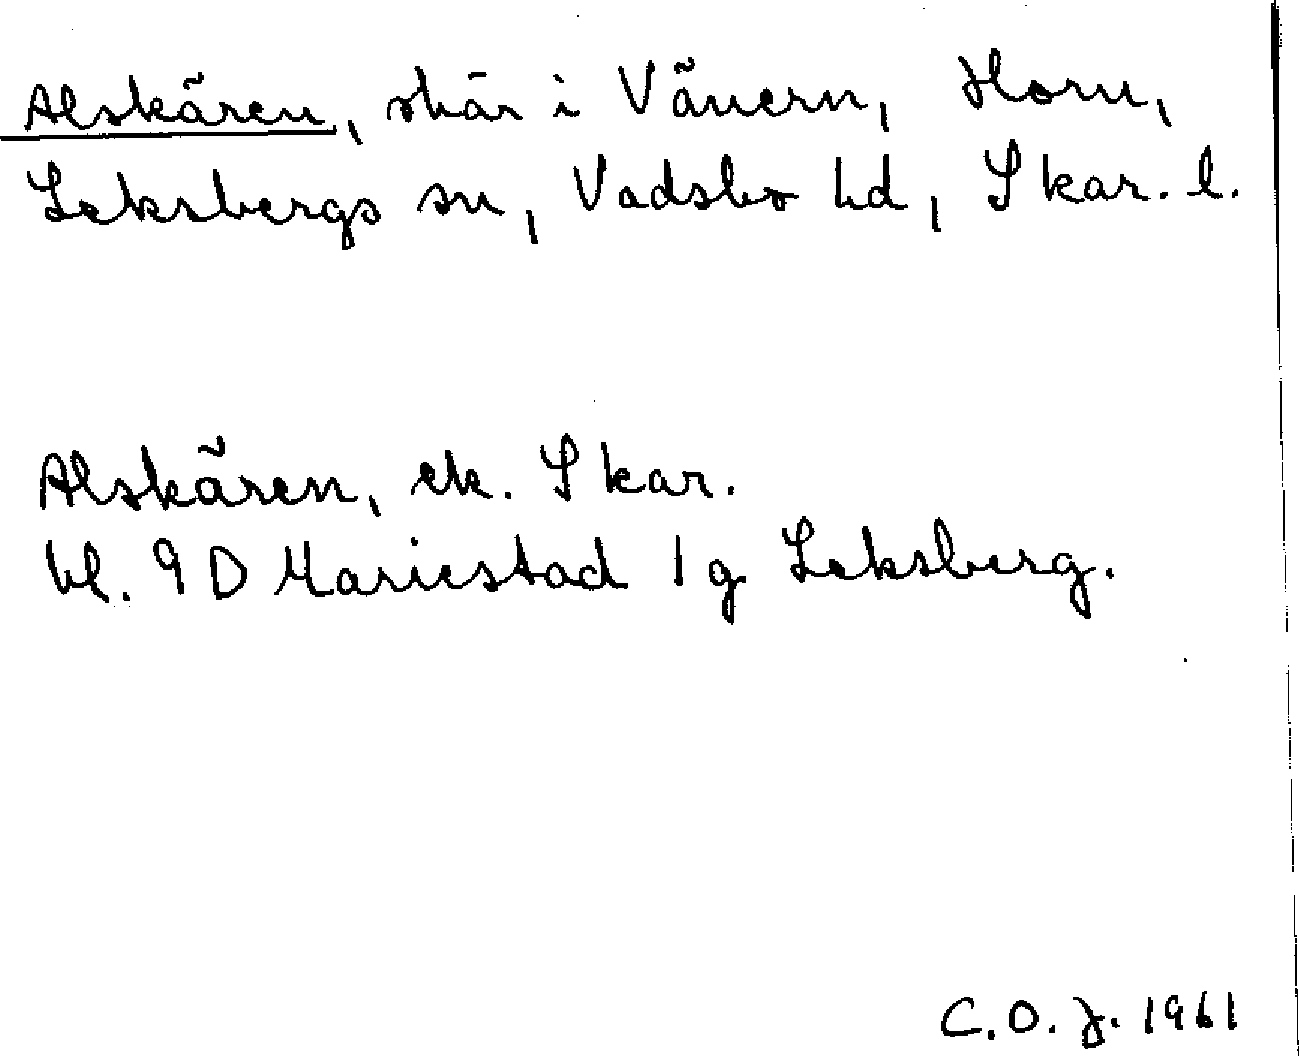 Alskären, skär i Vänern, Horn,
Leksbergs sn, Vadsbo hd, Skar. l.
Alskären, ek. Skar.
bl. 9 D Mariestad 1 g Leksberg.
C. O. J. 1961